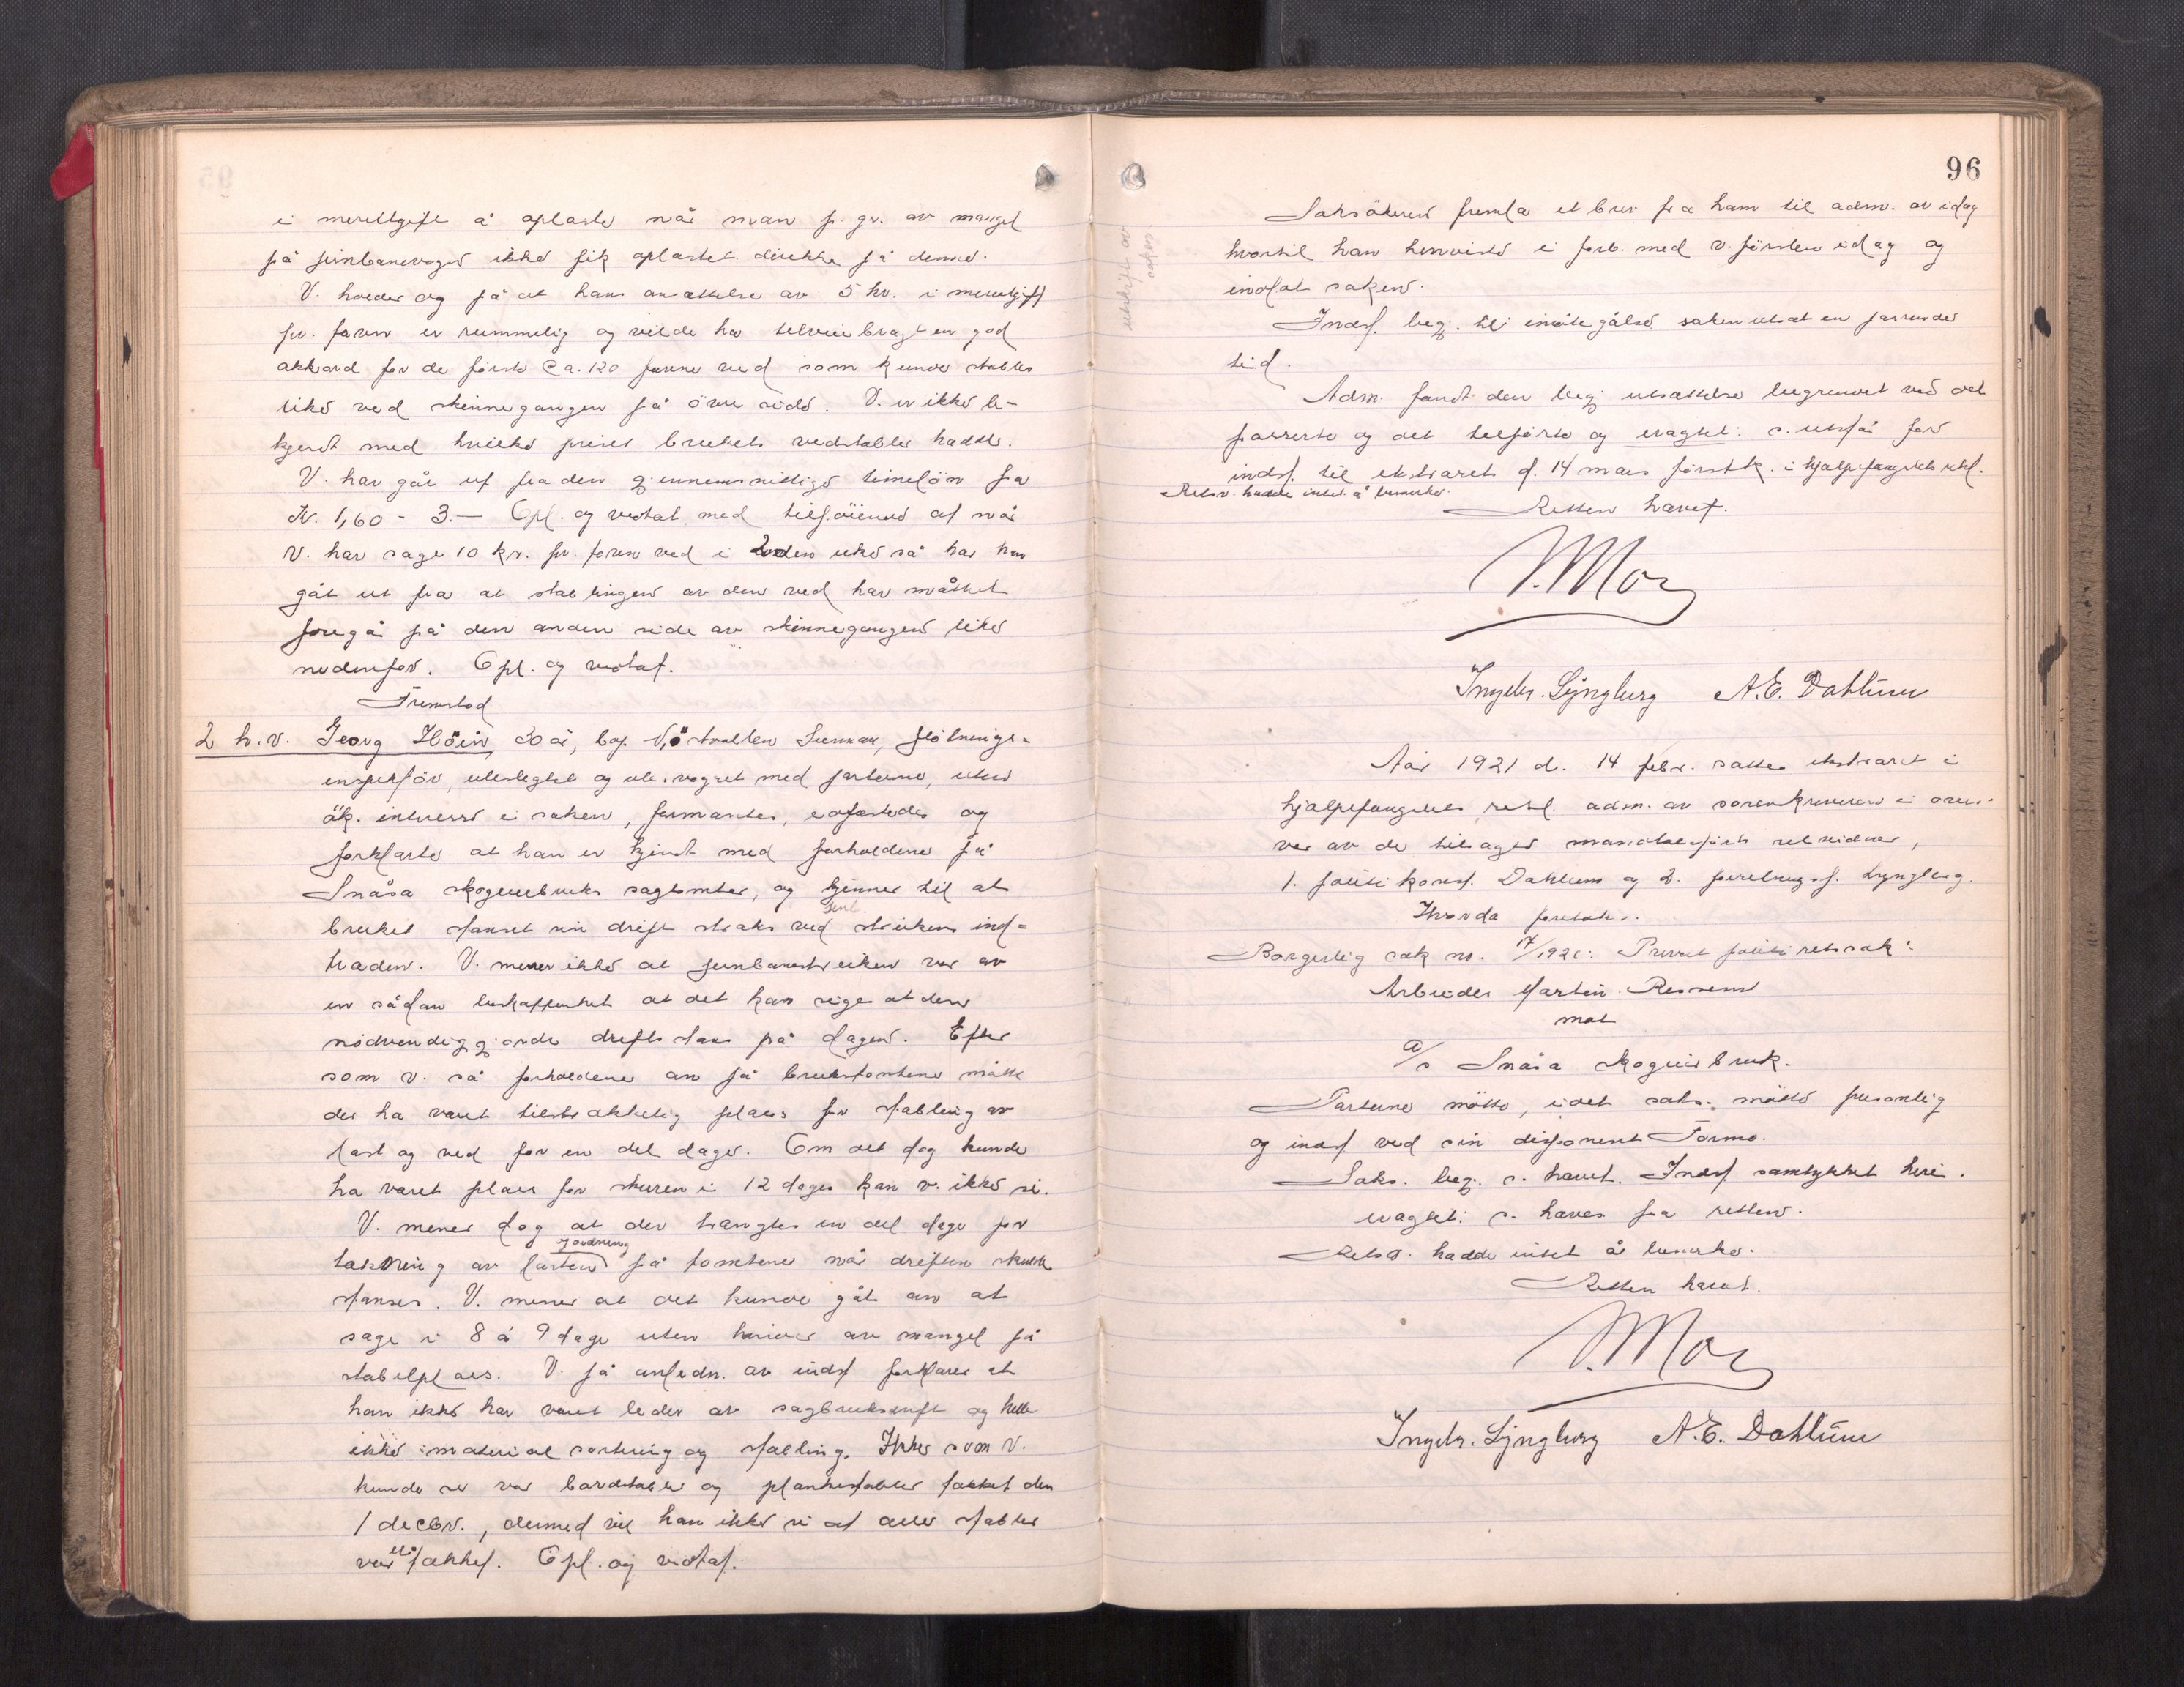 i merutgift å oplaste når man p. gr. av mangel
på jernbanevogner ikke fik oplastet direkte på denne.
V. holder og på at hans ansættelse av 5 kr. i merutgift
pr. favn er rummelig og vilde ha tilveiebragt en god
akkord for de første ca. 120 favne ved som kunde stables
like ved skinnegangen på övre side. V. er ikke be-
kjendt med hvilke priser brukets vedstabler hadde.
V. har gåt ut fra den gjennemsnitlige timelön fra
Kr. 1,60 - 3.— Opl. og vedtat med tilföiende at når
V. har sagt 10 kr. pr. favn ved i 2den uke så har han
gåt ut fra at stablingen av den ved har måttet
foregå på den anden side av skinnegangen like
nedenfor. Opl. og vedtat.
Fremstod
2 h.v. Georg Höin, 30 år, bop. Snåsa, flötnings-
inspektör, ubeslegtet og ube­svogret med parterne, uten
ök. interesse i saken, formantes, edfæstedes og
forklarte at han er kjendt med forholdene på
Snåsa skogeiebruks sagtomter, og kjenner til at
jernb.
bruket stanset sin drift straks ved streikens ind-
træden. V. mener ikke at jernbanestreiken var av
en sådan beskaffenhet at det kan siges at den
nödvendiggjorde driftsstans på dagen. Efter
som v. så forholdene an på brukstomtene måtte
der ha været tilstrækkelig plass for stabling av
last og ved for en del dager. Om det dog kunde
ha været plass for skuren i 12 dager kan v. ikke si.
V. mener dog at der trængtes en del dage for
og ordning
takning av lasten på tomtene når driften skulde
stanses. V. mener at det kunde gåt an at
sage i 8 à 9 dage uten hinder av mangel på
stabelplass. V. på anledn. av indst forklarer at
han ikke har været leder av sagbruksdrift og heller
ikke materialsortering og stabling. Efter som V.
kunde se var bordstabler og plankestabler takket den
1 decbr., dermed vil han ikke si at alle stabler
var takket. Opl. og vedtat.
96
utskrift av
saken
Saksökeren fremla et brev fra ham til adm. av idag
hvortil han henviste i forb. med v. förslen idag og
indlot saken.
Indst. begj. til imötegåelse saken utsat en passende
tid.
Adm. fandt den begj. utsættelse begrundet ved det
passerte og det tilförte og eragtet: s. utstår for
indst. til ekstraret d. 14 mars förstk. i hjælpefængslets retsl.
Retsv. hadde intet å bemerke.
Retten hævet.
Ingebr. Lyngberg A. E. Dahlum
Aar 1921 d. 14 febr. sattes ekstraret i
hjælpefængslets retsl. adm. av sorenskriveren i overv.
vær av de tilsagte mandtalsförte retsvidner,
1. politikonst. Dahlum og 2. Lyngberg.
Hvorda foretoks.
Borgerlig sak no. 17/1921: Privat politiretssak:
Arbeider Martin
mot
A/S Snåsa skogeiebruk.
Parterne mötte, idet saks. mötte personlig
og indst ved sin disponent Formo.
Saks. begj. s. hævet. Indst samtykket heri.
eragtet: s. hæves fra retten.
Retsv. hadde intet å bemerke.
Retten hævet.
Ingebr. Lyngberg A. E. Dahlum